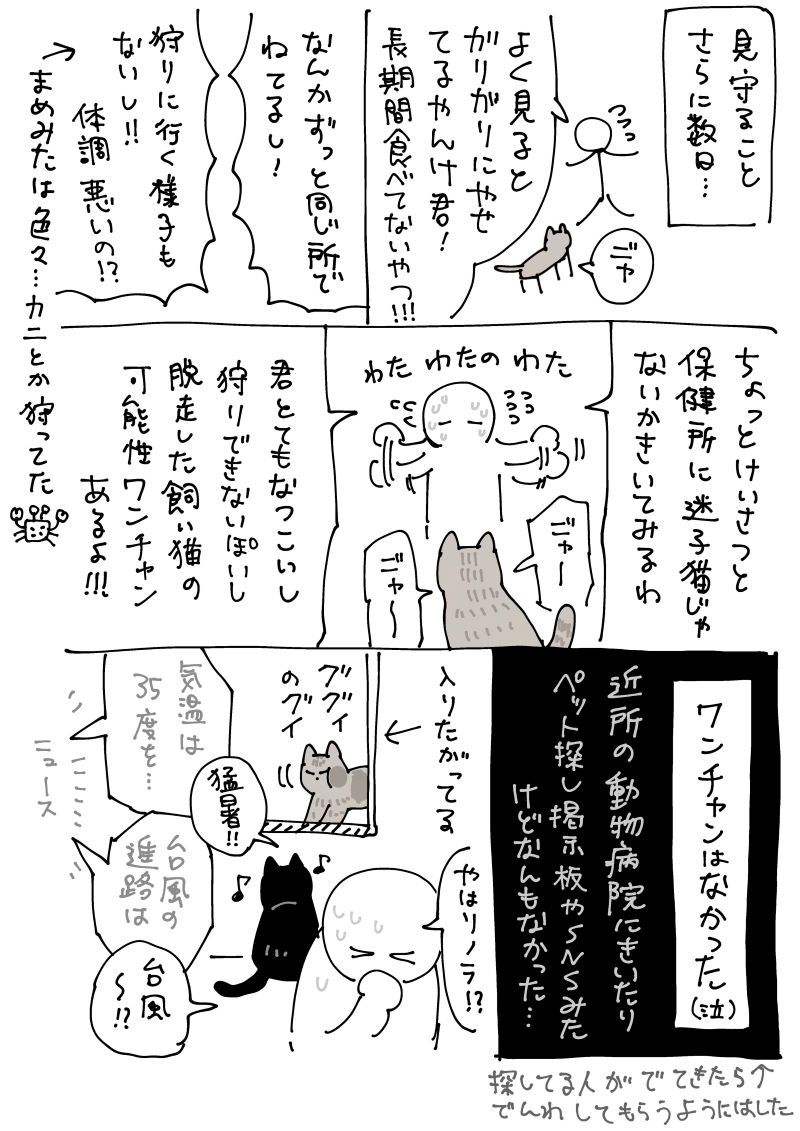 見守ること
さらに数日…
ニャ
よく見ると
がりがりにやせ
てるやんけ君!
長期間食べてないやつ!!!
なんかずっと同じ所で
ねてるし!
狩りに行く様子も
ないし!!
体調悪いの!?
→まめみたは色々…カニとか狩ってた
ちょっとけいさつと
保健所に迷子猫じゃ
ないかきいてみるわ
わたわたのわた
ニャー
ニャ〜
君とてもなつこいし
狩りできないぽいし
脱走した飼い猫の
可能性ワンチャン
あるよ!!!
ワンチャンはなかった(泣)
近所の動物病院にきいたり
ペット探し掲示板やSNSみた
けどなんもなかった…
探してる人がでてきたら↑
でんわしてもらうようにはした
入りたがってる
ググイ
のグイ
やはりノラ!?
気温は
35度を…
猛暑!!
ニュース
台風の
進路は
台風
〜!?